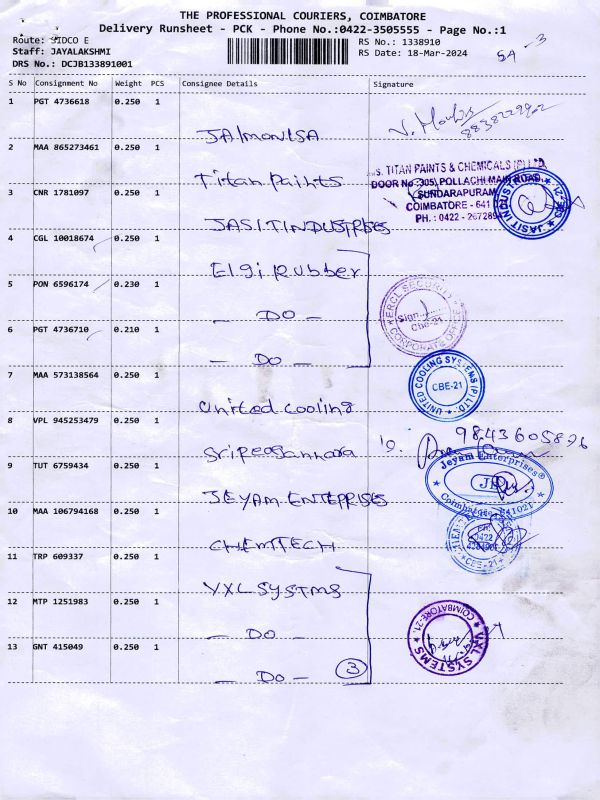 THE PROFESSIONAL COURIERS, COIMBATORE
Delivery Runsheet - PCK - Phone No.:0422-3505555 - Page No.:1
Route: SIDCO E
RS No.: 1338910
Staff: JAYALAKSHMI
RS Date: 18-Mar-2024
DRS No.: DCJB133891001
S No Consignment No Weight PCS Consignee Details Signature
1 PGT 4736618 0.250 1
8838222902
2 MAA 865273461 0.250 1
TITAN PAINTS & CHEMICALS (P) LTD.
Titan Paints
DOOR No :305, POLLACHI MAIN ROAD,
3 CNR 1781097 0.250 1
SUNDARAPURAM
COIMBATORE - 641
JASIT INDUSTRISES
PH. : 0422 - 26728
JASIT INDUSTRIES
4 CGL 10018674 0.250 1
Elgi Rubber
5 PON 6596174 0.230 1
— DO —
ERCL SECURITY
Sign
Cbe-21
CORPORATE OFFICE
6 PGT 4736710 0.210 1
— DO —
7 MAA 573138564 0.250 1
United Cooling
UNITED COOLING SYSTEMS (P) LTD.
CBE-21
8 VPL 945253479 0.250 1
9843605826
9 TUT 6759434 0.250 1
JEYAM ENTEPRISES
Jeyam Enterprises®
JE
Coimbatore - 641021
10 MAA 106794168 0.250 1
CHEMTECH
0422
CBE-21
11 TRP 609337 0.250 1
VXL SYSTMS
12 MTP 1251983 0.250 1
— DO —
COIMBATORE-21.
VXL SYSTEMS
13 GNT 415049 0.250 1
— DO —
3